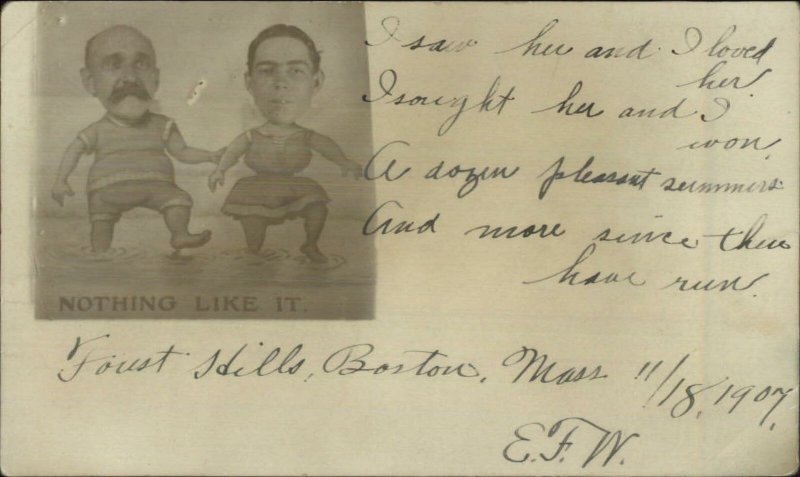 I saw her and I loved
her.
I sought her and I
won,
A dozen pleasant summers
And more since then
have run.
NOTHING LIKE IT.
Forest Hills, Boston, Mass 11/18, 1907,
E.F.W.